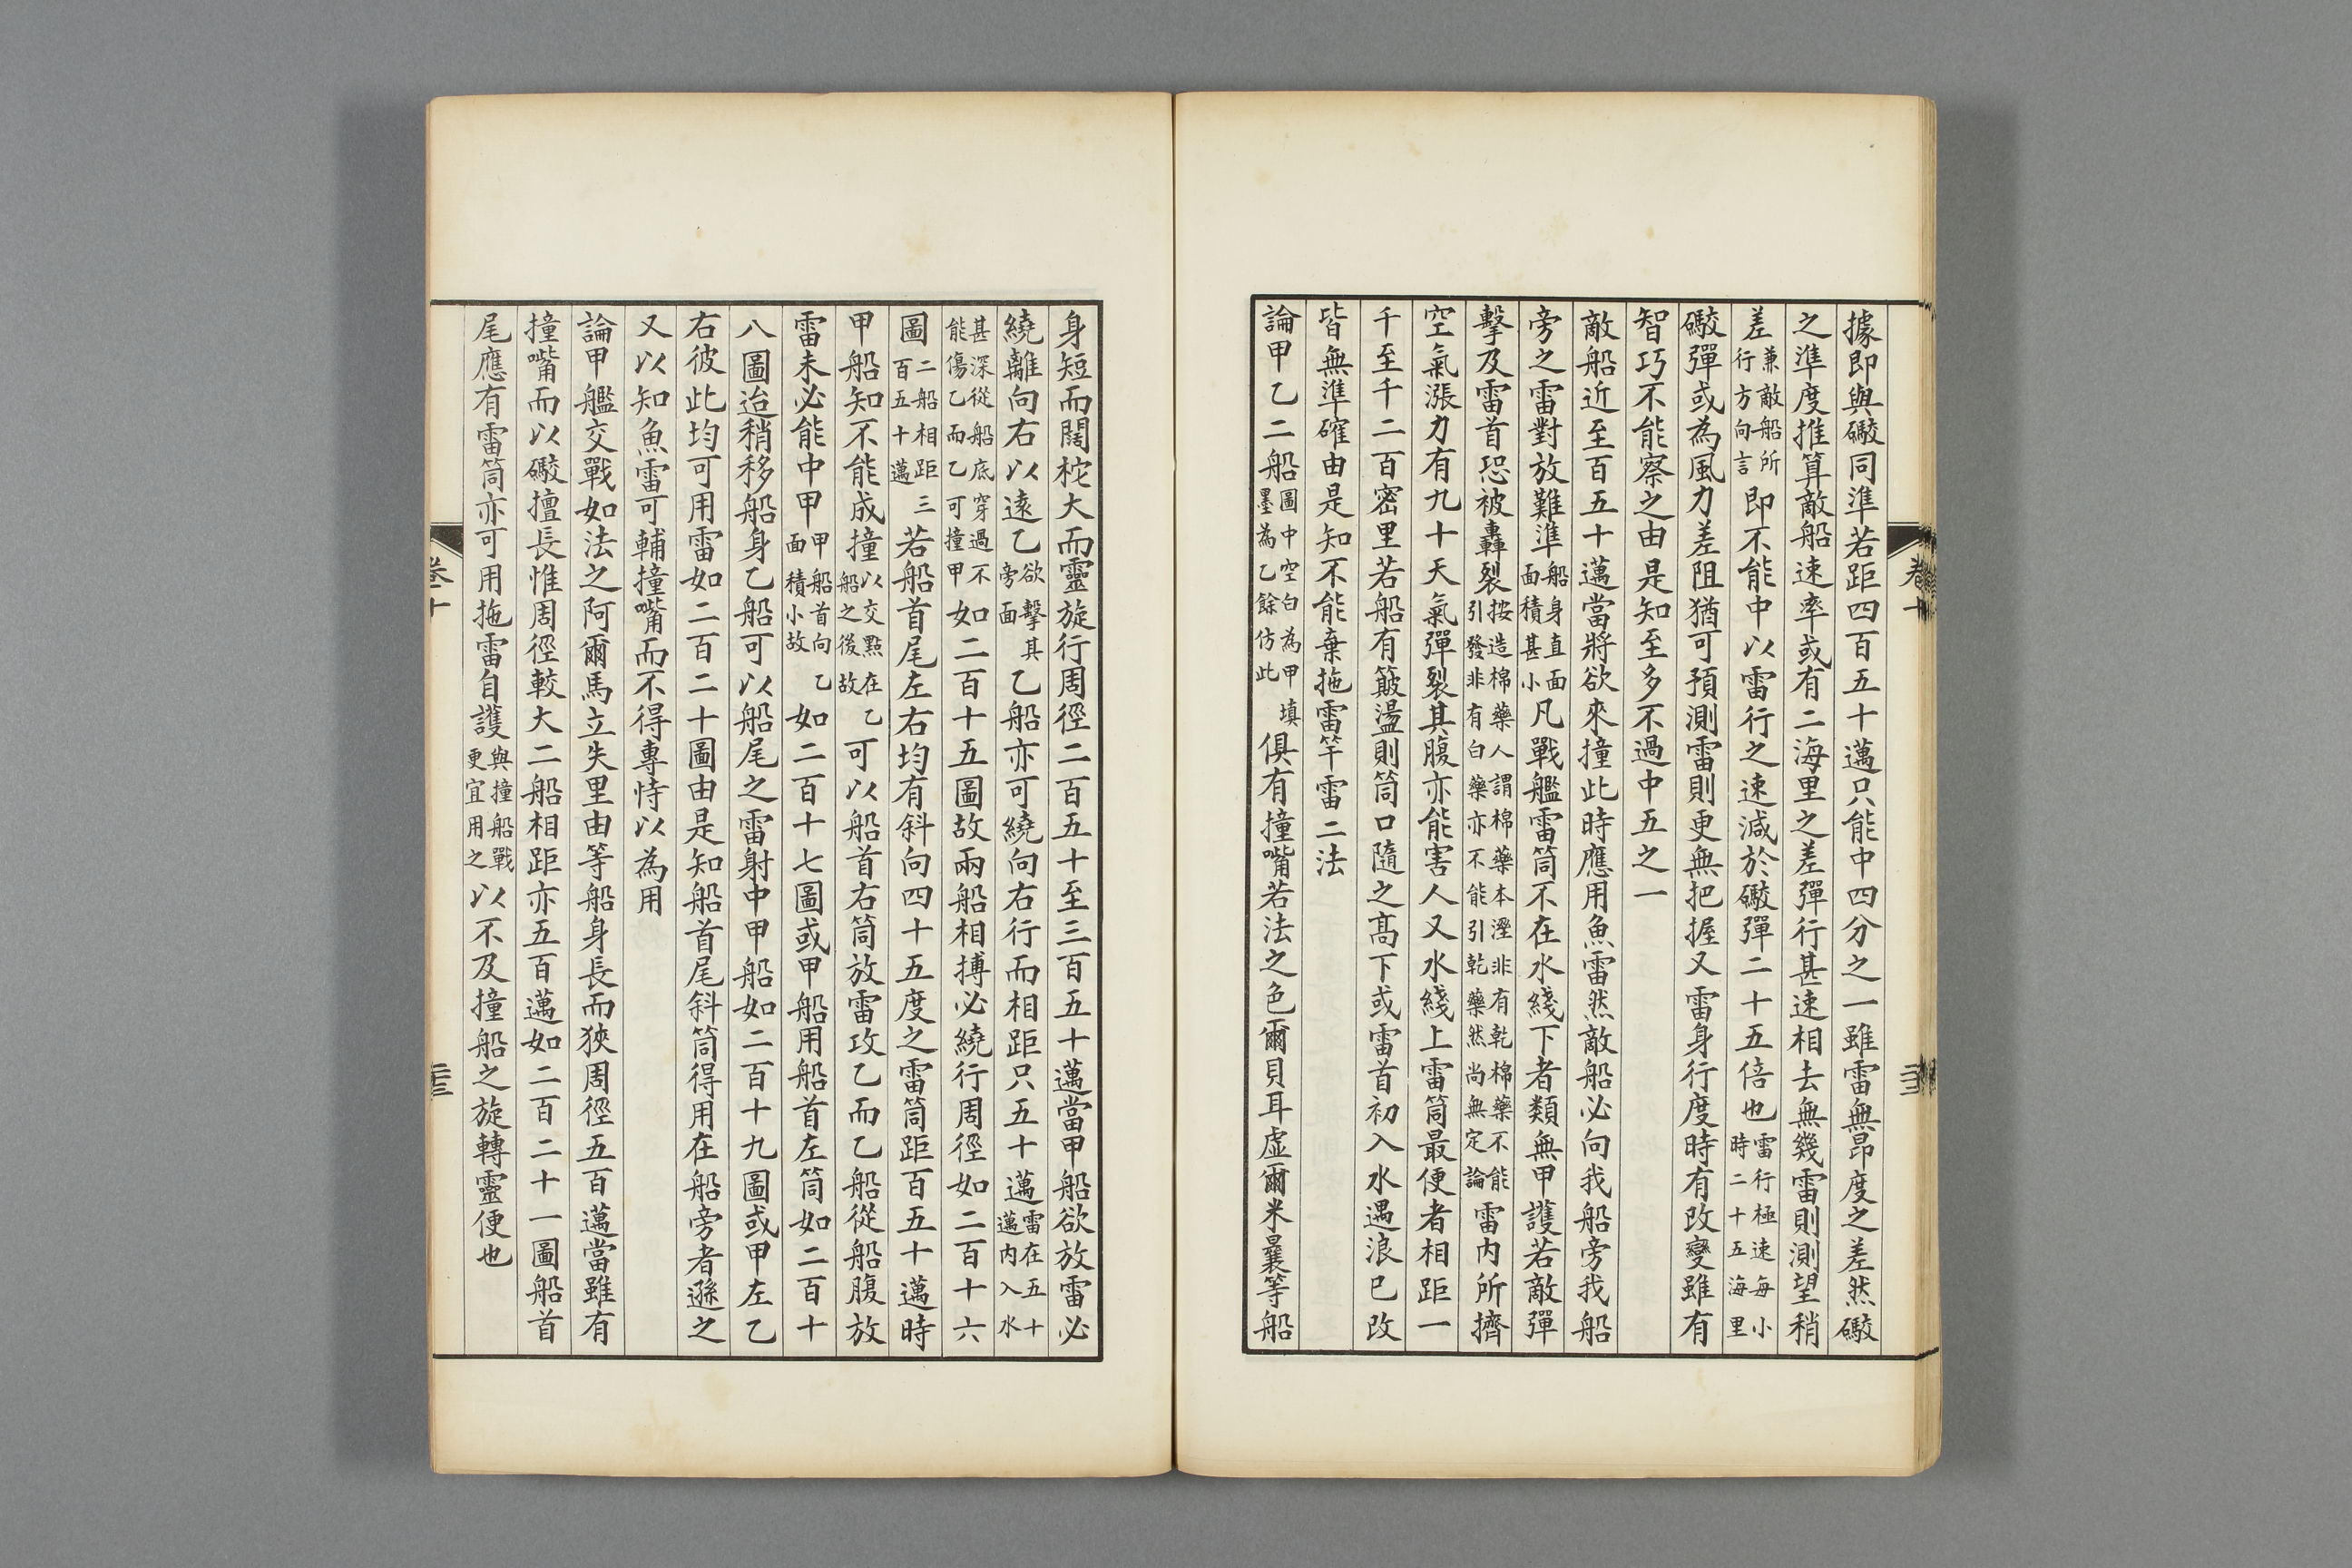 據即與礮同準若距四百五十邁只能中四分之一雖雷無昂度之差然礮
之準度推算敵船速率或有二海里之差彈行甚速相去無幾雷則測望稍
差兼敵船所行方向言即不能中以雷行之速減於礮彈二十五倍也雷行極速每小時二十五海里
礮彈或為風力差阻猶可預測雷則更無把握又雷身行度時有改變雖有
智巧不能察之由是知至多不過中五之一
敵船近至百五十邁當將欲來撞此時應用魚雷然敵船必向我船旁我船
旁之雷對放難準船身直面面積甚小凡戰艦雷筒不在水綫下者類無甲護若敵彈
擊及雷首恐被轟裂按造棉藥人謂棉藥本溼非有乾棉藥不能引發非有白藥亦不能引乾藥然尚無定論雷内所擠
空氣漲力有九十天氣彈裂其腹亦能害人又水綫上雷筒最便者相距一
千至千二百密里若船有簸盪則筒口隨之高下或雷首初入水遇浪已改
皆無準確由是知不能棄拖雷竿雷二法
論甲乙二船圖中空白為甲填墨為乙餘仿此俱有撞嘴若法之色爾貝耳虛爾米曩等船
卷十
身短而闊柁大而靈旋行周徑二百五十至三百五十邁當甲船欲放雷必
繞離向右以遠乙欲擊其旁面乙船亦可繞向右行而相距只五十邁雷在五十邁内入水
甚深從船底穿過不能傷乙而乙可撞甲如二百十五圖故兩船相搏必繞行周徑如二百十六
圖二船相距三百五十邁若船首尾左右均有斜向四十五度之雷筒距百五十邁時
甲船知不能成撞以交點在船之後故乙可以船首右筒放雷攻乙而乙船從船腹放
雷未必能中甲甲船首向乙面積小故如二百十七圖或甲船用船首左筒如二百十
八圖迨稍移船身乙船可以船尾之雷射中甲船如二百十九圖或甲左乙
右彼此均可用雷如二百二十圖由是知船首尾斜筒得用在船旁者遜之
又以知魚雷可輔撞嘴而不得專恃以為用
論甲艦交戰如法之阿爾馬立失里由等船身長而狹周徑五百邁當雖有
撞嘴而以礮擅長惟周徑較大二船相距亦五百邁如二百二十一圖船首
尾應有雷筒亦可用拖雷自護與撞船戰更宜用之以不及撞船之旋轉靈便也
卷十